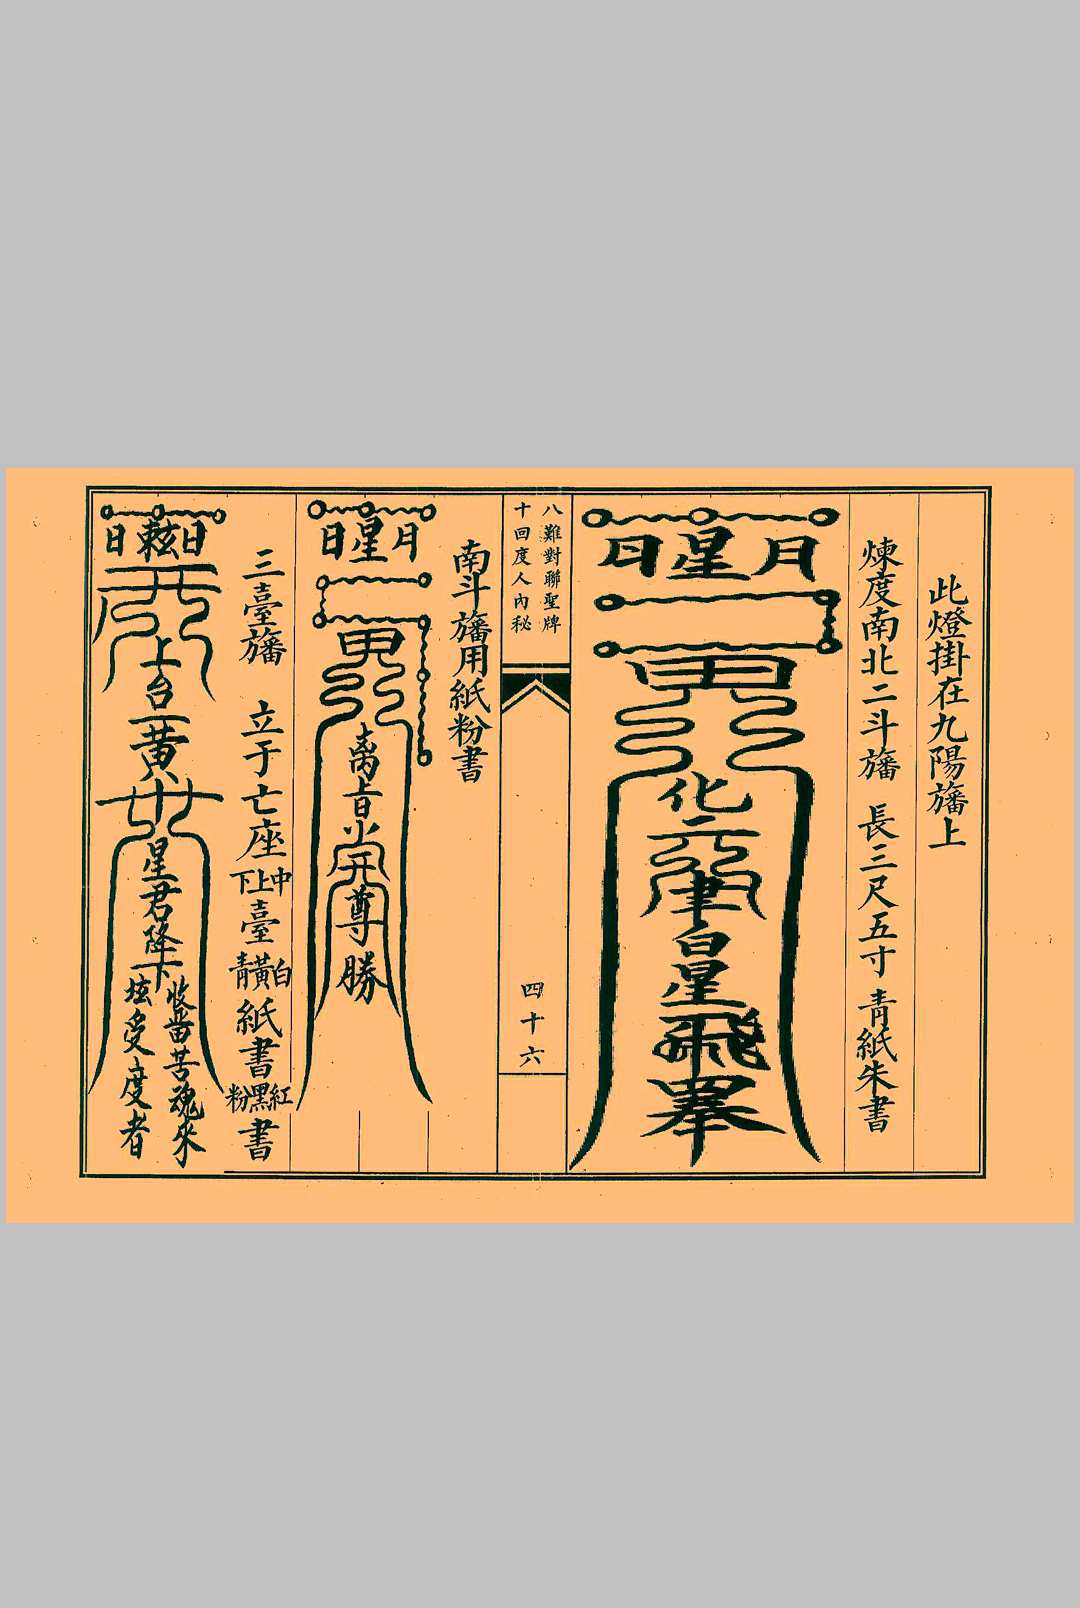 此燈掛在九陽旛上
煉度南北二斗旛 長三尺五寸 青紙朱書
日星月
化
聿白星飛
八難對聯聖牌
十回度人內秘
四十六
南斗旛用紙粉書
日星月
离
尊勝
三臺旛 立于亡座中上下臺白黃青紙書紅黑粉書
日 日
上台
黄
星君降下
收苗苦魂來
炫受度者